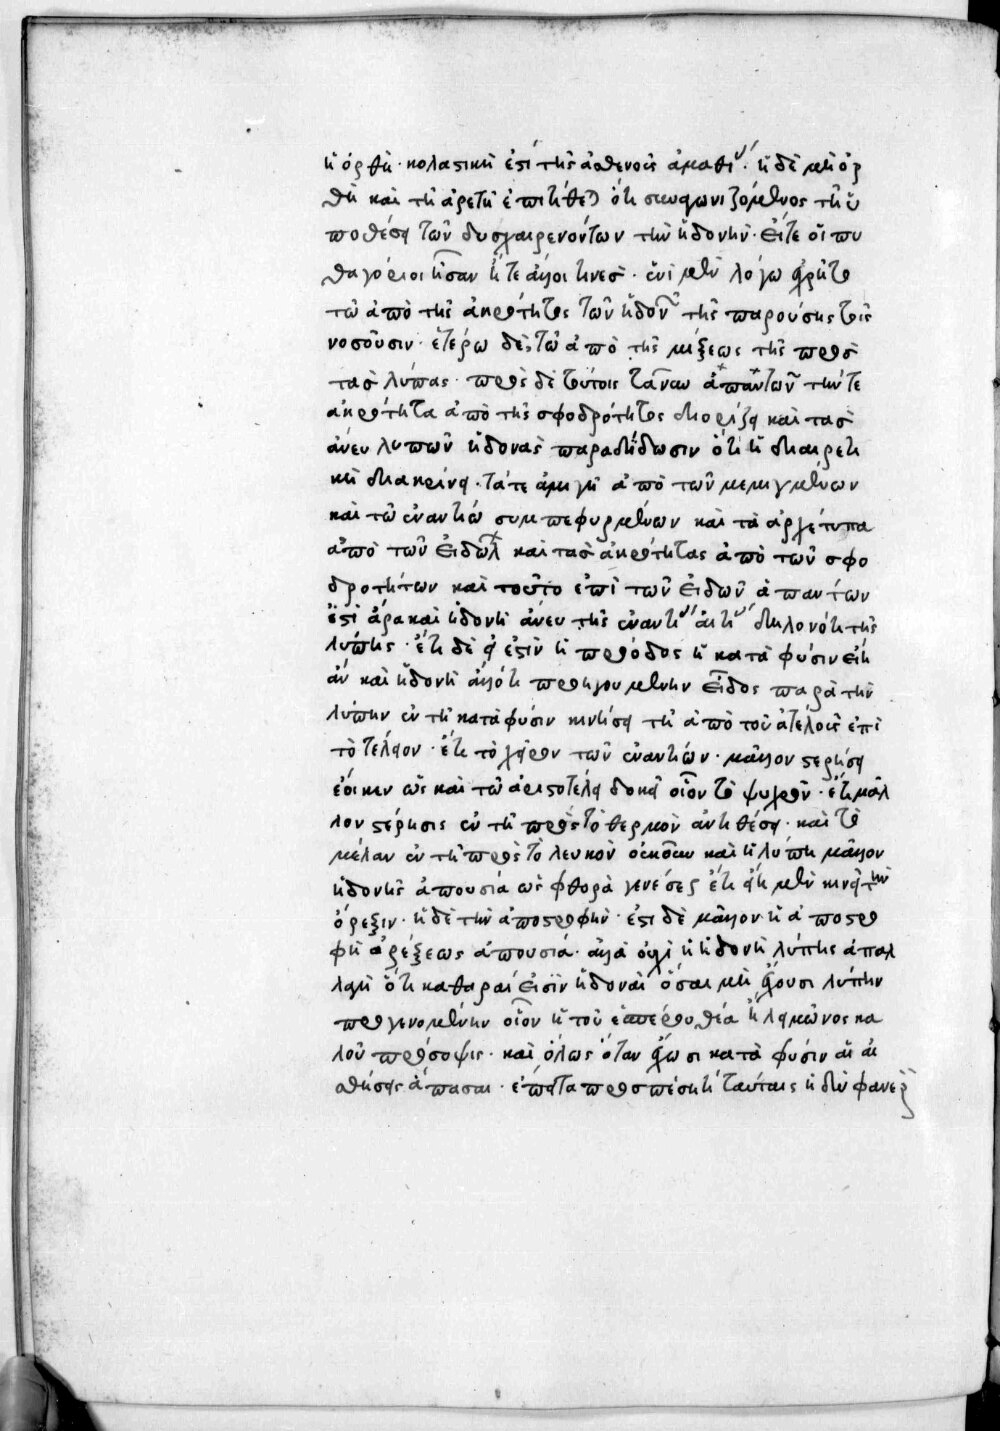 ἡ ὀρθή· κολαστική ἐστι τῆς ἀσθενοῦς ἀμαθί· ἡ δὲ μὴ ὀρ
θὴ καὶ τῇ ἀρετῇ ἐπιτίθεται ὅτι σκυφωνιζόμενος τῇ ὑ
ποθέσει τῶν δυσχαιρενόντων τὴν ἡδονήν· εἴτε οἱ πυ
θαγόρειοι ἦσαν εἴτε ἄλλοι τινές· ἑνὶ μὲν λόγω χρῆται
τῶ ἀπὸ τῆς ἀκρότητος τῶν ἡδονῶν τῆς παρούσης τοῖς
νοσοῦσιν· ἑτέρω δὲ, τῶ ἀπὸ τῆς μίξεως τῆς πρὸς
τὰς λύπας· πρὸς δὲ τούτοις ἁπάντων τήν τε
ἀκρότητα ἀπὸ τῆς σφοδρότητος διορίζει καὶ τὰς
ἄνευ λυπῶν ἡδονὰς παραδίδωσιν ὅτι ἡ διαιρετι
κὴ διακρίνει· τά τε ἀμιγῆ ἀπὸ τῶν μεμιγμένων
καὶ τῶ ἐναντίω συμπεφυρμένων καὶ τὰ ἀρχέτυπα
ἀπὸ τῶν εἰδώλ καὶ τὰς ἀκρότητας ἀπὸ τῶν σφο
δροτήτων καὶ τοῦτο ἐπὶ τῶν εἰδῶν ἁπάντων
ἔστι ἄρα καὶ ἡδονὴ ἄνευ τῆς ἐναντί δηλονότι τῆς
λύπης· ἔτι δὲ εἰ ἔστιν ἡ πρόοδος ἡ κατὰ φύσιν εἴη
ἂν καὶ ἡδονὴ ἄλλό τι προηγουμένην εἶδος παρὰ τὴν
λύπην ἐν τῇ κατὰ φύσιν κινήσει τῇ ἀπὸ τοῦ ἀτελοῦς ἐπὶ
τὸ τέλειον· ἔτι τὸ χεῖρον τῶν ἐναντίων· μᾶλλον στερήσει
ἔοικεν ὡς καὶ τῶ ἀριστοτέλει δοκεῖ οἷον τὸ ψυχρόν· ἔτι μᾶλ
λον στέρησις ἐν τῇ πρὸς τὸ θερμὸν ἀντιθέσει· καὶ τὸ
μέλαν ἐν τῇ πρὸς τὸ λευκὸν καὶ ἡ λύπη μᾶλλον
ἡδονῆς ἀπουσία ὡς φθορὰ γενέσεως ἔτι εἰ ἡ μὲν κινεῖ τὴν
ὄρεξιν· ἡ δὲ τὴν ἀποστροφήν· ἔστι δὲ μᾶλλον ἡ ἀποστρο
φὴ ὀρέξεως ἀπουσία· ἀλλὰ οὐχὶ ἡ ἡδονὴ λύπης ἀπαλ
λαγὴ ὅτι καθαραί εἰσιν ἡδοναὶ ὅσαι μὴ ἔχουσι λύπην
προγενομένην οἷον ἡ τοῦ θέα ἢ λειμῶνος κα
λοῦ πρόσοψις· καὶ ὅλως ὅταν ἔχωσι κατὰ φύσιν αἱ αἰ
σθήσεις ἅπασαι· ἔπειτα προσπέσῃ τι ταύταις ἡδὺ φανερ